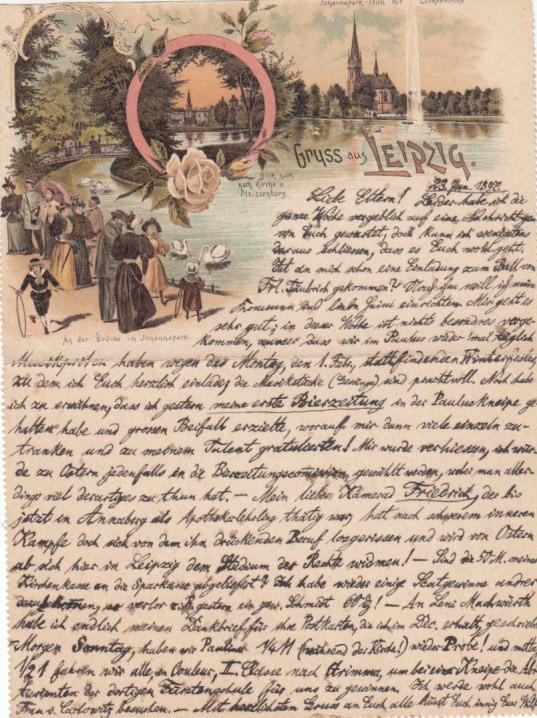 Johannapark-Teich mit Lutherkirche
Gruss aus LEIPZIG.
Blick nach
Pleissenburg.
An der Brücke im Johannapark.
23. Jan. 189
Liebe Eltern! Leider habe ich die
ganze Woche vergeblich auf eine Nachricht
von Euch gewartet, doch kann ich wenigstens
daraus schliessen, dass es Euch wohl geht.
Ist denn mich schon eine Einladung zum Ball von
Frl. gekommen? will ich mein
Kommen und einrichten. Mir geht es
sehr gut; in dieser Woche ist nichts besondres vorge-
kommen, ausser dass wir im Paulus wieder mal täglich
Musikproben haben wegen des Montag, den 1. Febr., stattfindenden Winter
zu dem ich Euch herzlich einlade; die Musikstücke (Gesänge) sind prachtvoll. Noch habe
ich zu erwähnen, dass ich gestern meine erste Bierzeitung in der Pauluskneipe ge-
halten habe und grossen Beifall erzielte, worauf mir dann viele einzeln zu-
tranken und zu meinem Talent gratulierten! Mir wurde verhiessen, ich wür-
de zu Ostern jedenfalls in die gewählt werden, wobei man aller-
dings viel derartiges zu thun hat. — Mein lieber Kamerad Friedrich, der bis
jetzt in Annaberg als Apothekerlehrling thätig war, hat nach schwerem inneren
Kampfe doch sich von dem ihn drückenden Beruf losgerissen und wird von Ostern
ab sich hier in Leipzig dem Studium der Rechte widmen! — Sind die 50 M. meiner
Kirchenkasse an die Sparkasse abgeliefert? Ich habe wieder einige
so verlor gestern ein gew. Schmidt 60 ₰! — An Leni
habe ich endlich meinen Dankbrief für ihre Postkarten, die ich im Dec. erhielt, geschrieben
Morgen Sonntag, haben wir Pauliner ¼11 (während der Kirche!) wieder Probe! und mittags
½1 fahren wir alle, en Couleur, II. Classe nach Grimma, um bei einer Kneipe die Abi-
turienten der dortigen Fürstenschule für uns zu gewinnen. Ich werde wohl auch
Frau v. Carlowitz besuchen. — Mit herzlichstem Gruss an Euch alle küsst Euch innig Euer